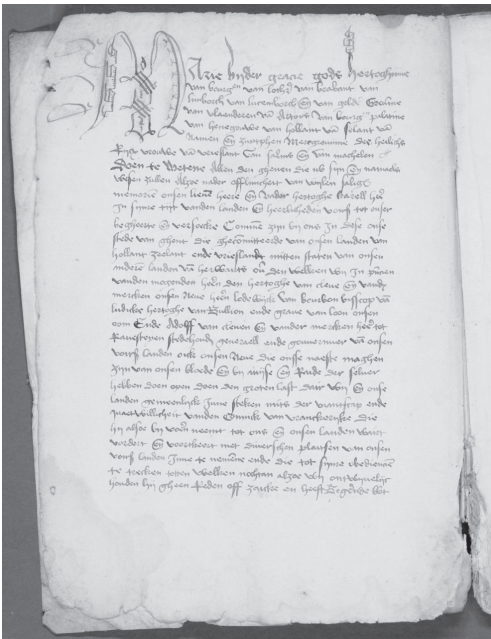 Marie bijder gracie gods hertoghinne
van bourgn van lothr van brabant van
limborch van lucemborch en van gelre Grevinne
van vlaenderen van Artois van bourgn palatine
van henegouwe van hollant van zelant van
Namen en zutphen Mercgravinne des heilichs
Rijcx vrouwe van vrieslant van salins en van mechelen
Doen te wetene allen den ghenen die nu sijn en namaels
wesen zullen Alzoe nader afflivicheit van wijlen saligr
memorien onsen lieven heere en vader hertoghe karell
In sijnre tijt vanden landen en heerlicheden voirs tot onser
begheerte en versoecke Comen zijn bij ons In dese onse
stede van ghent die ghecommitteerde van onsen landen van
hollant zeelant ende vrieslandt mitten staten van onsen
anderen landen van herwaerts over den welken wij In
vanden hertoghe van cleve en vander
marcken onsen Neve heren lodewijck van bourbon bisscop van
ludicke hertoghe van Bullion ende grave van loen onsen
oem Ende Adolff van cleven en vander marcken heer tot
Ravesteyn stedehoudr generaell ende gouverneur van onsen
voirs landen oick onsen Neve die onse naeste maghen
zijn van onsen bloede en bij advise en Raide der selver
hebben doen open doen den groten last dair wij en onse
landen gemeenlijck Inne steken mits der ende
quaetwillicheit vanden Coninck van vranckrijcke die
hij alsoe bij tot ons en onsen landen wairt
en met diverschen plaitsen van onsen
voirs landen Inne te nemene ende die tot sijnre obedientie
te trecken toten welken nochtan alzoe wij ontwijvelijc
houden hij gheen Reden off zaicke en heeft